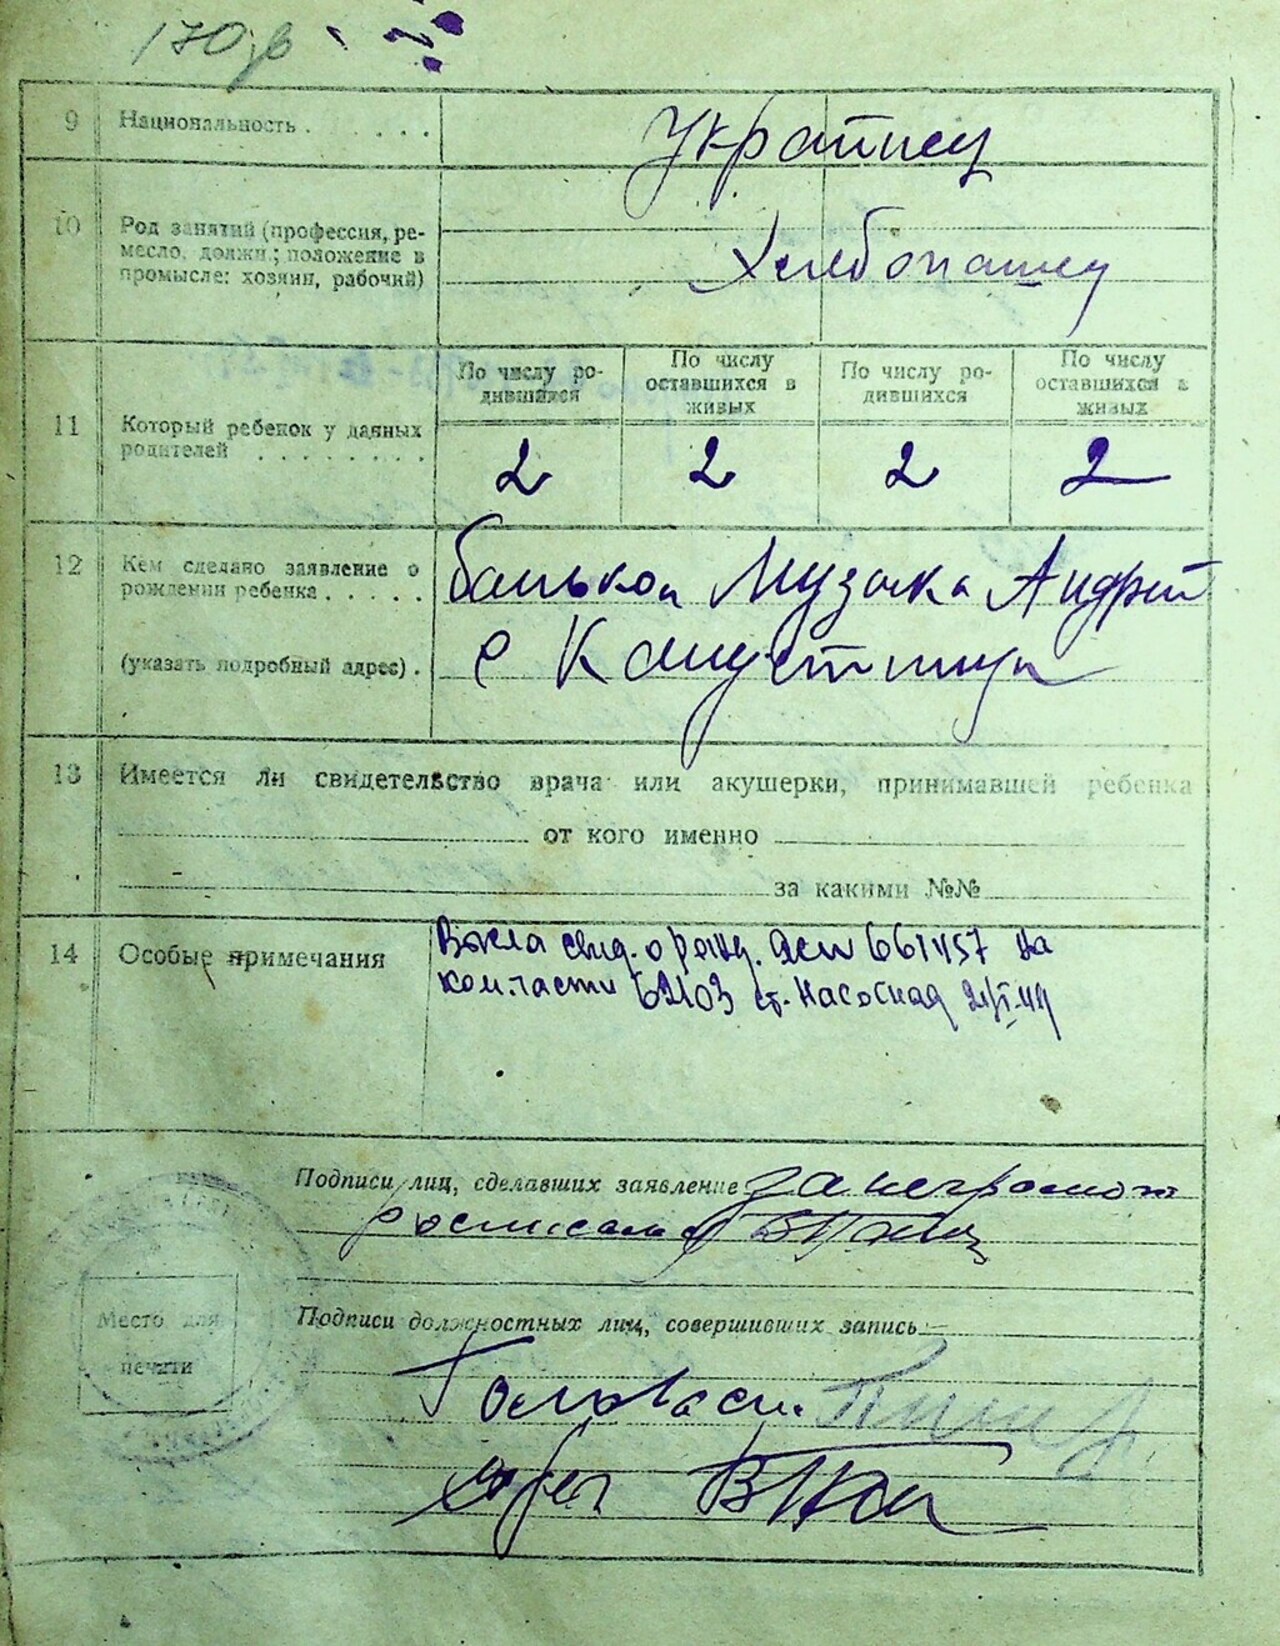 170
9 Национальность . . . . . .
Украинец
10 Род занятий (профессия, ре-
месло, должн.; положение в
промысле: хозяин, рабочий)
Хлебопашец
11 Который ребенок у данных
родителей . . . . . . . .
По числу ро-
дившихся
По числу
оставшихся в
живых
По числу ро-
дившихся
По числу
оставшихся в
живых
2 2 2 2
12 Кем сделано заявление о
рождении ребенка . . . . .
(указать подробный адрес) .
батьком Музычка Андрей
с Капустинцы
13 Имеется ли свидетельство врача или акушерки, принимавшей ребенка
от кого именно
за какими №№
14 Особые примечания
свид. о рожд. 661457 на
ком.части 62103 ст. Насосная
Подписи лиц, сделавших заявление за неграмотн
росписался
Место для
печати
Подписи должностных лиц, совершивших запись
Голова